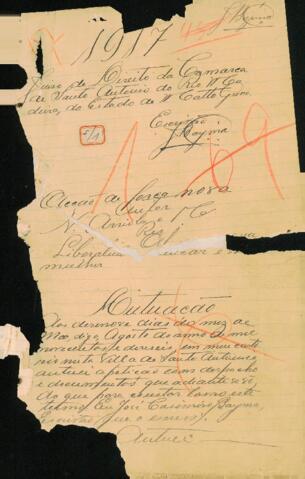 1917
Juizo de Direito da Comarca
de Santo Antonio do Rio Ma
deira, do Estado de Matto Grosso
Escrivão
JBayma
f/1
169
Acção de força nova
Autor
Réo
mulher
Autuação
Aos dezenove dias do mez de
Agosto do anno de mil
novecentos e dezesete, em meu carto
rio nesta Villa de Santo Antonio
autuei a petição com despacho
e documentos que adiante se vê,
do que para constar lavro este
termo. Eu José Casimiro Bayma,
Escrivão que o escrevi.
Autuei